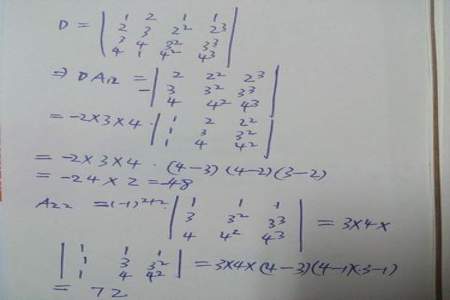 D = | 1 2 1 1
2 3 2² 2³
3 4 3² 3³
4 1 4² 4³ |
⇒ DA₁₂ = - | 2 2² 2³
3 3² 3³
4 4² 4³ |
= -2×3×4 · | 1 2 2²
1 3 3²
1 4 4² |
= -2×3×4 · (4-3)(4-2)(3-2)
= -24×2 = -48
A₂₂ = (-1)²⁺² · | 1 1 1
3 3² 3³
4 4² 4³ | = 3×4×
| 1 1 1
1 3 3²
1 4 4² | = 3×4×(4-3)(4-1)(3-1)
= 72